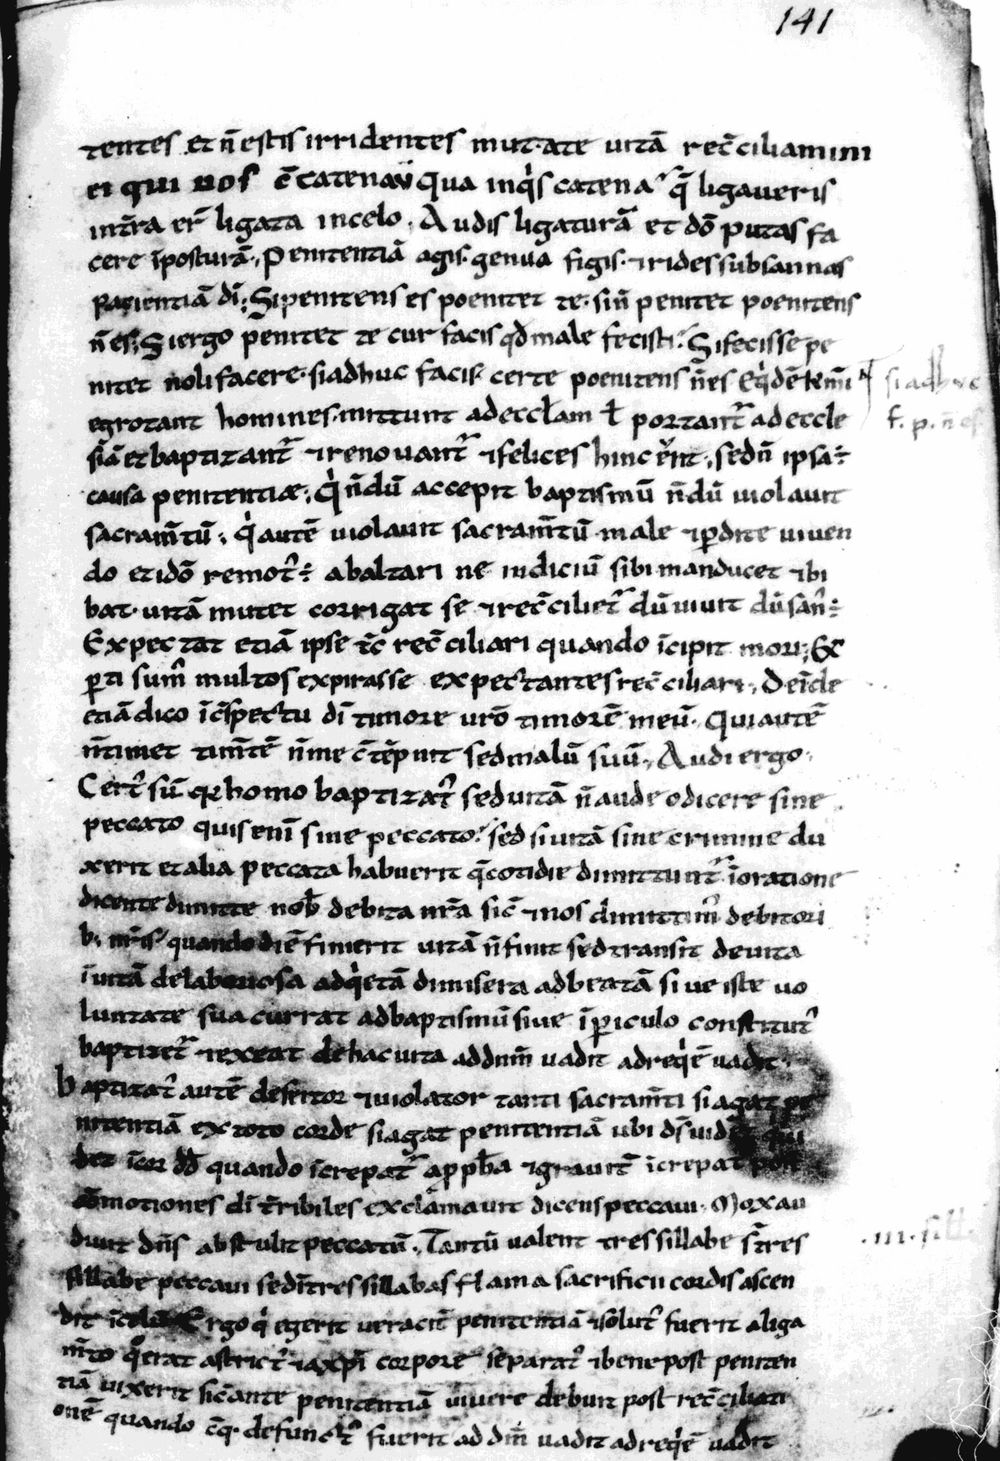 141
tentes et n̄ estis irridentes mutate uitā rec̄ciliamini
ei qui uos c̄catenauit qua inq̇s catena q̄ ligaueris
int̄ra er̄ ligata incelo. Audis ligaturā et dō putas fa
cere īposturā. Penitentiā agis. genua figis. & rides subsannas
pacientiā dī. Si penitens es poenitet te. sin̄ penitet poenitens
n̄ es. Si ergo penitet te cur facis qd̄ male fecisti. Si fecisse pe
nitet noli facere. si adhuc facis certe poenitens n̄ es
si adhuc
f. p. n̄ es
egrotant homines. mittunt ad eccl̄am ł portant᷑ ad eccle
siā et baptizant᷑ & renouant᷑ & felices hinc er̄nt. sed n̄ ipsa ÷
causa penitentiæ. q̇ n̄dū accepit baptismū n̄dū uiolauit
sacram̄tū. q̇ autē uiolauit sacram̄tū male & ꝑdite uiuen
do et idō remot᷒ ÷ ab altari ne iudiciū sibi manducet & bi
bat. uitā mutet corrigat se & rec̄ciliet᷑ dū uiuit dū san᷒ ÷
Expectat etiā ipse t̄c rec̄ciliari quando īcipit mori. Ex
ꝑti sum᷒ multos expirasse expectantes rec̄ciliari. Deīde
etiā dico ī c̄spectu dī timore ur̄o timorē meū. Qui autē
n̄ timet tim̄tē n̄ me c̄tēpnit sed malū suū. Audi ergo.
Cert᷒ sū qr homo baptizat᷒ sed uitā n̄ audeo dicere sine
peccato quis enī sine peccato. sed si uitā sine crimine du
xerit et alia peccata habuerit q̄ cotidie dimittunt᷑ ī oratione
dicente dimitte nob̄ debita nr̄a sic̄ & nos dimittim᷒ debitori
b; nr̄is quando diē finierit uitā n̄ finit sed transit de uita
ī uitā de laboriosa ad q̇etā de misera ad beatā siue iste uo
luntate sua currat ad baptismū siue ī ꝑiculo constitut᷒
baptizet᷑ & exeat de hac uita ad dnm̄ uadit ad req̇ē uadit.
Baptizat᷒ autē desertor & uiolator tanti sacram̄ti si agat pe
nitentiā ex toto corde si agat penitentiā ubi ds̄ uidet
īcor dd̄ quando īcrepat᷑ a ꝓph̄a & grauit̄ īcrepat post
cōmotiones dī t̄ribiles exclamauit dicens peccaui. Mox au
diuit dn̄s abstulit peccatū. Tantū ualent tres sillabe s̄ tres
.iii. sill.
sillabe peccaui sed ī tres sillabas flama sacrificii cordis ascen
dit ī celū Ergo q̇ egerit ueracit̄ penitentiā & solut᷒ fuerit aliga
m̄to q° erat astrict᷒ & a xpī corpore separat᷒ & bene post peniten
tiā uixerit sic̄ ante penitentiā uiuere debuit post rec̄ciliati
onē quando c̄q; defunct᷒ fuerit ad dm̄ uadit ad req̇ē uadit